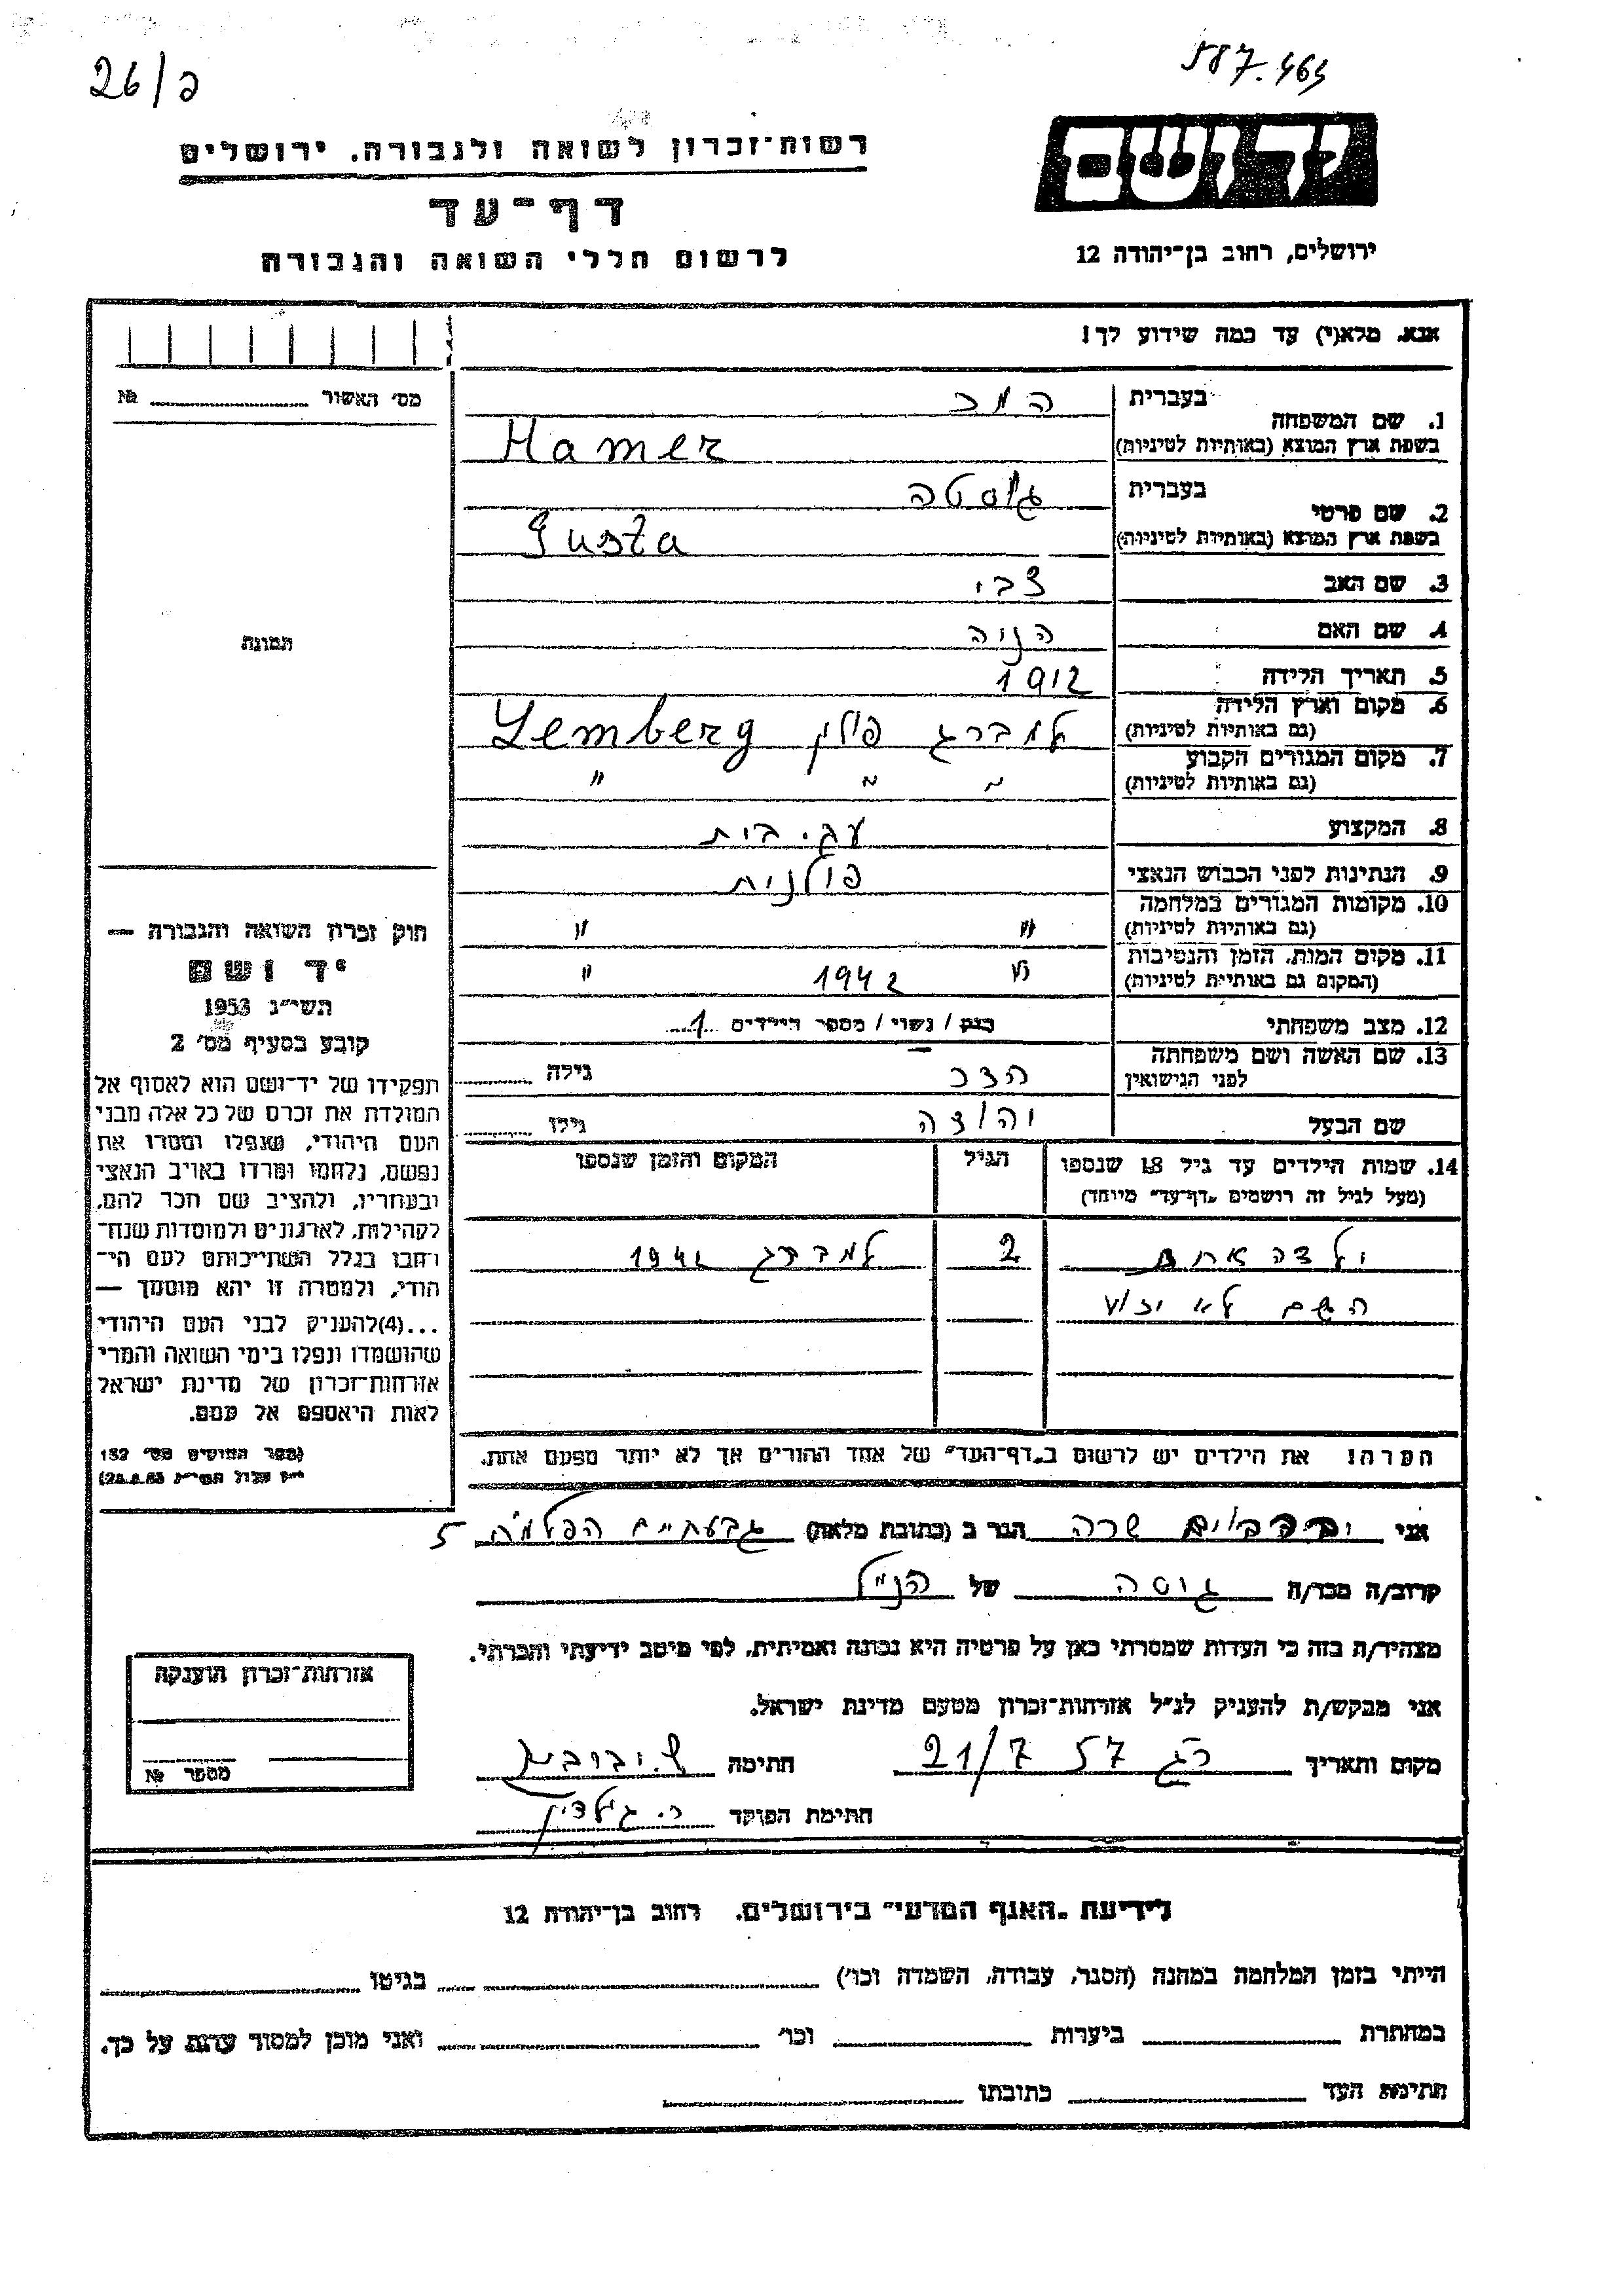 26/פ
587.464
רשות־זכרון לשואה ולגבורה. ירושלים
יד ושם
דף־עד
לרשום חללי השואה והגבורה
ירושלים, רחוב בן־יהודה 12
אנא. מלא(י) עד כמה שידוע לך!
מס׳ האשור № 
1. שם המשפחה
בעברית המר
בשפת ארץ המוצא (באותיות לטיניות) Hamer
2. שם פרטי
בעברית גוסטה
בשפת ארץ המוצא (באותיות לטיניות) Gusta
3. שם האב צבי
4. שם האם הניה
תמונה
5. תאריך הלידה 1912
6. מקום וארץ הלידה
(גם באותיות לטיניות) למברג פולין Lemberg
7. מקום המגורים הקבוע
(גם באותיות לטיניות) " " "
8. המקצוע עק. בית
9. הנתינות לפני הכבוש הנאצי פולנית
10. מקומות המגורים במלחמה
(גם באותיות לטיניות) " "
11. מקום המות. הזמן והנסיבות
(המקום גם באותיות לטיניות) " 1942 "
12. מצב משפחתי רווק / נשוי / מספר הילדים 1
13. שם האשה ושם משפחתה
לפני הנישואין גילה
שם הבעל גילו
14. שמות הילדים עד גיל 18 שנספו
(מעל לגיל זה רושמים "דף־עד" מיוחד)
הגיל
המקום והזמן שנספו
ילדה אחת 2 למברג 1942
השם לא ידוע
הערה! את הילדים יש לרשום ב"דף־העד" של אחד ההורים אך לא יותר מפעם אחת.
חוק זכרון השואה והגבורה —
יד ושם
תשי״ג 1953
קובע בסעיף מס׳ 2
תפקידו של יד־ושם הוא לאסוף אל
המולדת את זכרם של כל אלה מבני
העם היהודי, שנפלו ומסרו את
נפשם, נלחמו ומרדו באויב הנאצי
ובעוזריו, ולהציב שם וזכר להם,
לקהילות, לארגונים ולמוסדות שנח־
רבו בגלל השתייכותם לעם הי־
הודי, ולמטרה זו יהא מוסמך —
...(4)להעניק לבני העם היהודי
שהושמדו ונפלו בימי השואה והמרי
אזרחות־זכרון של מדינת ישראל
לאות היאספם אל עמם.
(ספר החוקים מס׳ 132
אני שרה הגר ב (כתובת מלאה) גבעתיים הפלמ"ח 5
קרוב/ה מכר/ה גיסה של הנ"ל
מצהיר/ה בזה כי העדות שמסרתי כאן על פרטיה היא נכונה ואמיתית. לפי מיטב ידיעתי והכרתי.
אני מבקש/ת להעניק לנ"ל אזרחות־זכרון מטעם מדינת ישראל.
מקום ותאריך רג 21/7 57 חתימה
חתימת הפוקד
אזרחות־זכרון הוענקה
מספר №
לידיעת "האגף המדעי" בירושלים. רחוב בן־יהודה 12
הייתי בזמן המלחמה במחנה (הסגר, עבודה, השמדה וכו׳) בגיטו
במחתרת ביערות וכו׳ ואני מוכן למסור עדות על כך.
חתימת העד כתובתו